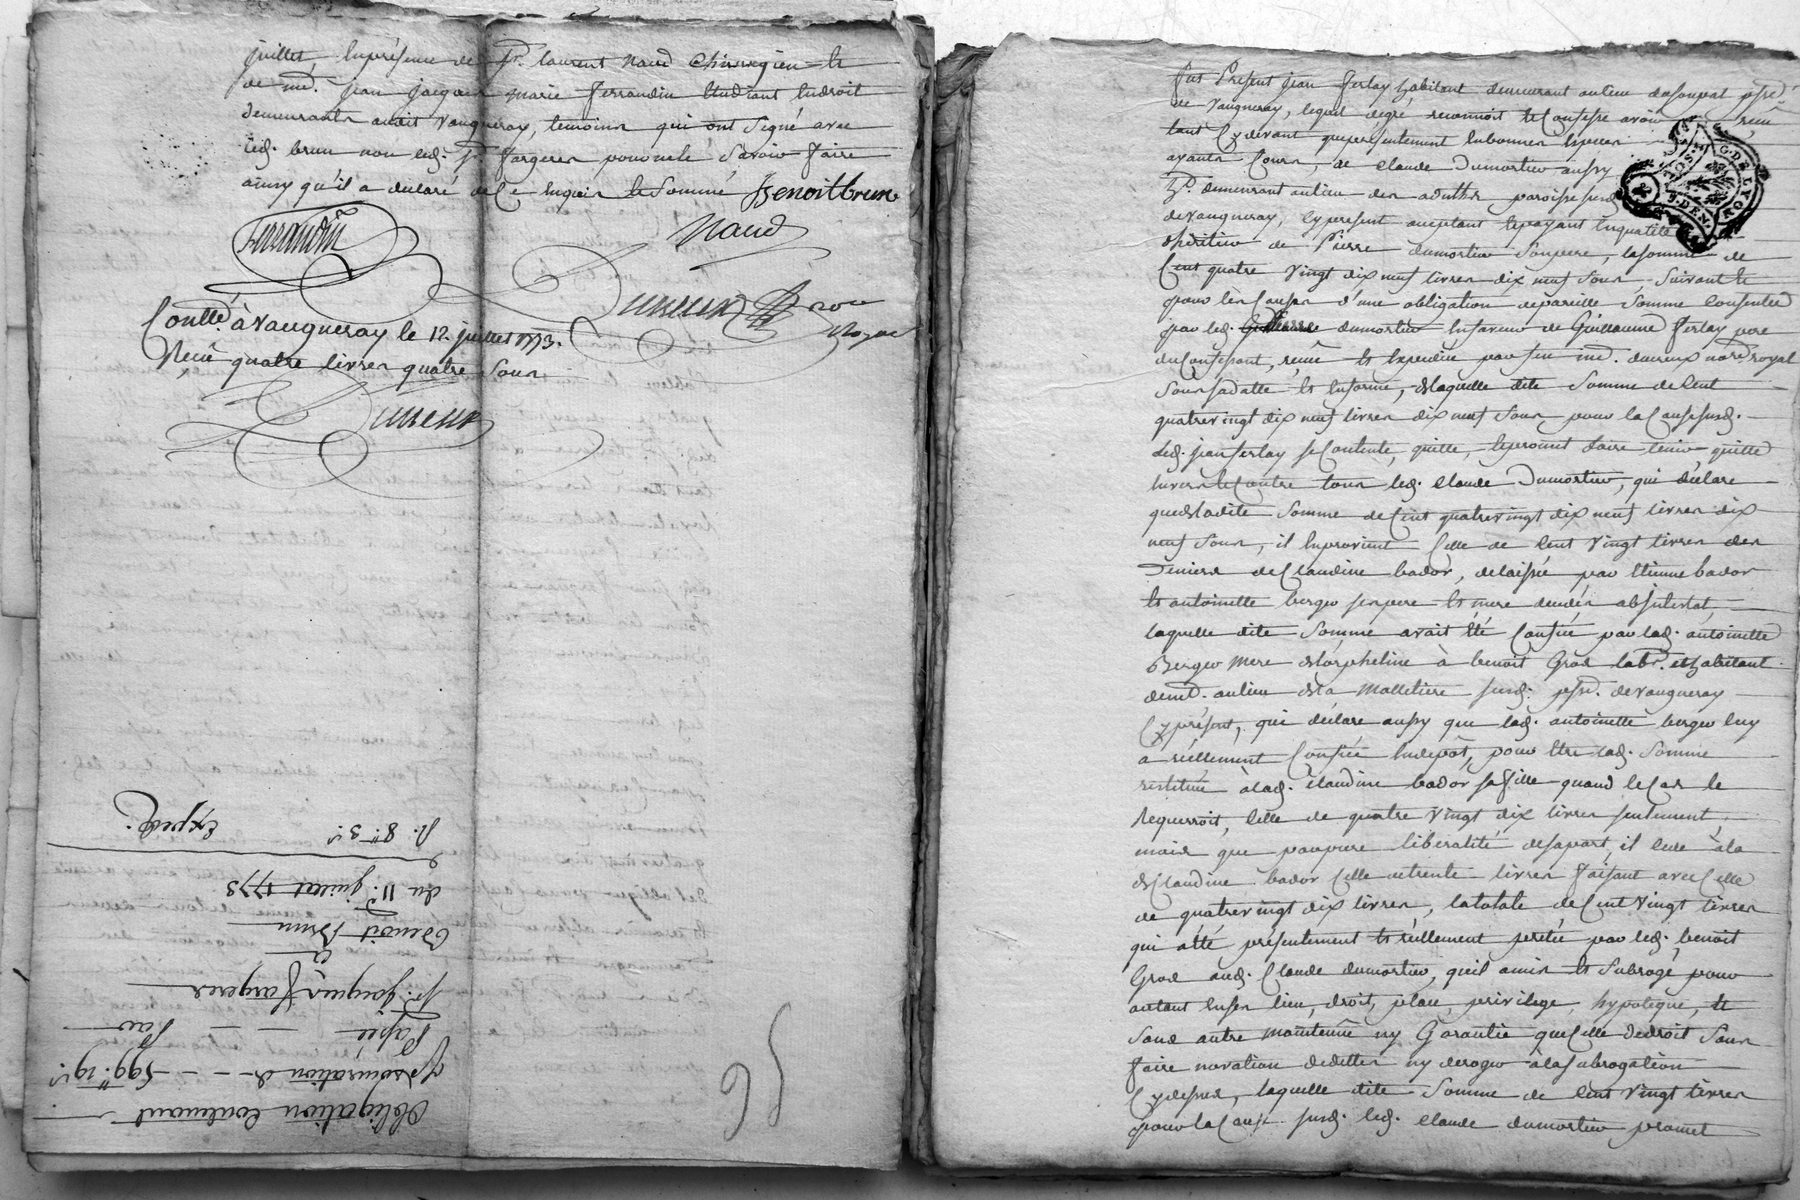 juillet, En présence de Sr. laurent Naud Chirurgien et
de me. jean jacques marie ferrandin Etudiant Endroit
demeurants audit Vaugneray, temoins qui ont Signé avec
led. brun non led. Sr. fargeres pour ne le Savoir faire
ainsy qu'il a declaré de Ce Enquis et Sommé Benoit brun
ferrandin
Naud
Dureux
Nore
Royal
Conllé. à Vaugneray le 12. juillet 1773.
Reçu quatre livres quatre Sous
Dureux
Obligation Contenant
Procuration de - - 599." 19.s
Passée par
Sr. jacques fargeres
a
Benoit Brun
du 11e. juillet 1773
R. 8." 3.s
Exped.
95
fut Present jean ferlay habitant demeurant au lieu de psse.
de Vaugneray, lequel degré reconnoit et Confesse avoir reçu
tant Cy devant que presentement En bonnes Especes
ayants Cours, de Claude Dumortier aussy
demeurant au lieu des adutths paroisse susd.
de Vaugneray, Cy present acceptant Et payant En qualité
d'héritier de Pierre dumortier Son pere, la somme de
Cent quatre Vingt dix neuf livres dix neuf Sous, Suivant et
pour les Causes d'une obligation de pareille Somme Consentie
par led. Pierre dumortier En faveur de Guillaume ferlay pere
du Confessant, reçuë Et Expediée par feu me. dureux nore. royal
Sous sa datte Et En forme, de laquelle dite Somme de Cent
quatrevingt dix neuf livres dix neuf Sous pour la Cause susd.
led. jean ferlay se Contente, quitte, Et promet faire tenir quitte
Envers Et Contre tous led. Claude Dumortier, qui declare
que de ladite Somme de Cent quatrevingt dix neuf livres dix
neuf Sous, il En provient Celle de Cent Vingt livres des
deniers de Claudine bador, delaissée par Etienne bador
Et antoinette berger ses pere Et mere decedés abintestat,
laquelle dite Somme avait Eté Confiée par lad. antoinette
Berger mere de l'orpheline à benoit Gros labr. et habitant
demt. au lieu de la Malletiere susd. psse. de Vaugneray
Cy présent, qui declare aussy que lad. antoinette berger luy
a réellement Confiée En depôt, pour Etre lad. Somme
restituée à lad. Claudine bador sa fille quand le Cas le
requerroit, Celle de quatre Vingt dix livres seulement,
mais que par pure liberalité de sa part, il Cede à la
de Claudine bador Celle de trente livres faisant avec Celle
de quatrevingt dix livres, la totale de Cent Vingt livres
qui a Eté présentement Et réellement pretée par led. benoit
Gros aud. Claude dumortier, qu'il a mis Et Subrogé pour
autant En son lieu, droit, place, privilege, hypoteque, Et
Sans autre maintenue ny Garantie que Celle de droit Sans
faire novation de dettes ny deroger à la subrogation
Cy dessus, laquelle dite Somme de Cent Vingt livres
pour la Cause susd. led. Claude dumortier promet